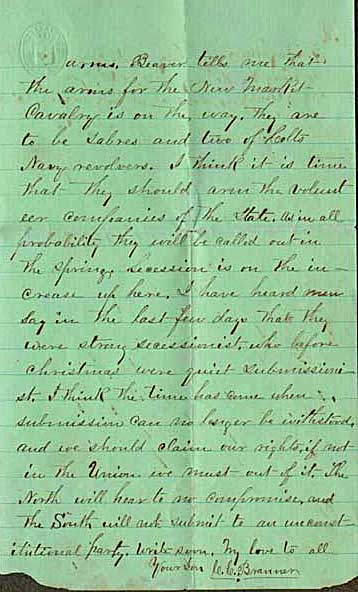 arms. Beaver tells me that
the arms for the New Market
Cavalry is on the way. they are
to be Sabres and two of Colts
Navy revolvers. I think it is time
that they should arm the volunt
eer companies of the State. as in all
probability they will be called out in
the Spring. Secession is on the in-
crease up here. I have heard men
Say in the last few days that they
were strong secessionist, who before
christmas were quiet Submissioni
st. I think the time has come when
submission can no longer be withstood,
and we should claim our rights, if not
in the Union we must out of it. The
North will hear to no compromise, and
the South will not submit to an unconst-
itutional party. Write soon. My love to all
Your son C.C. Brannen